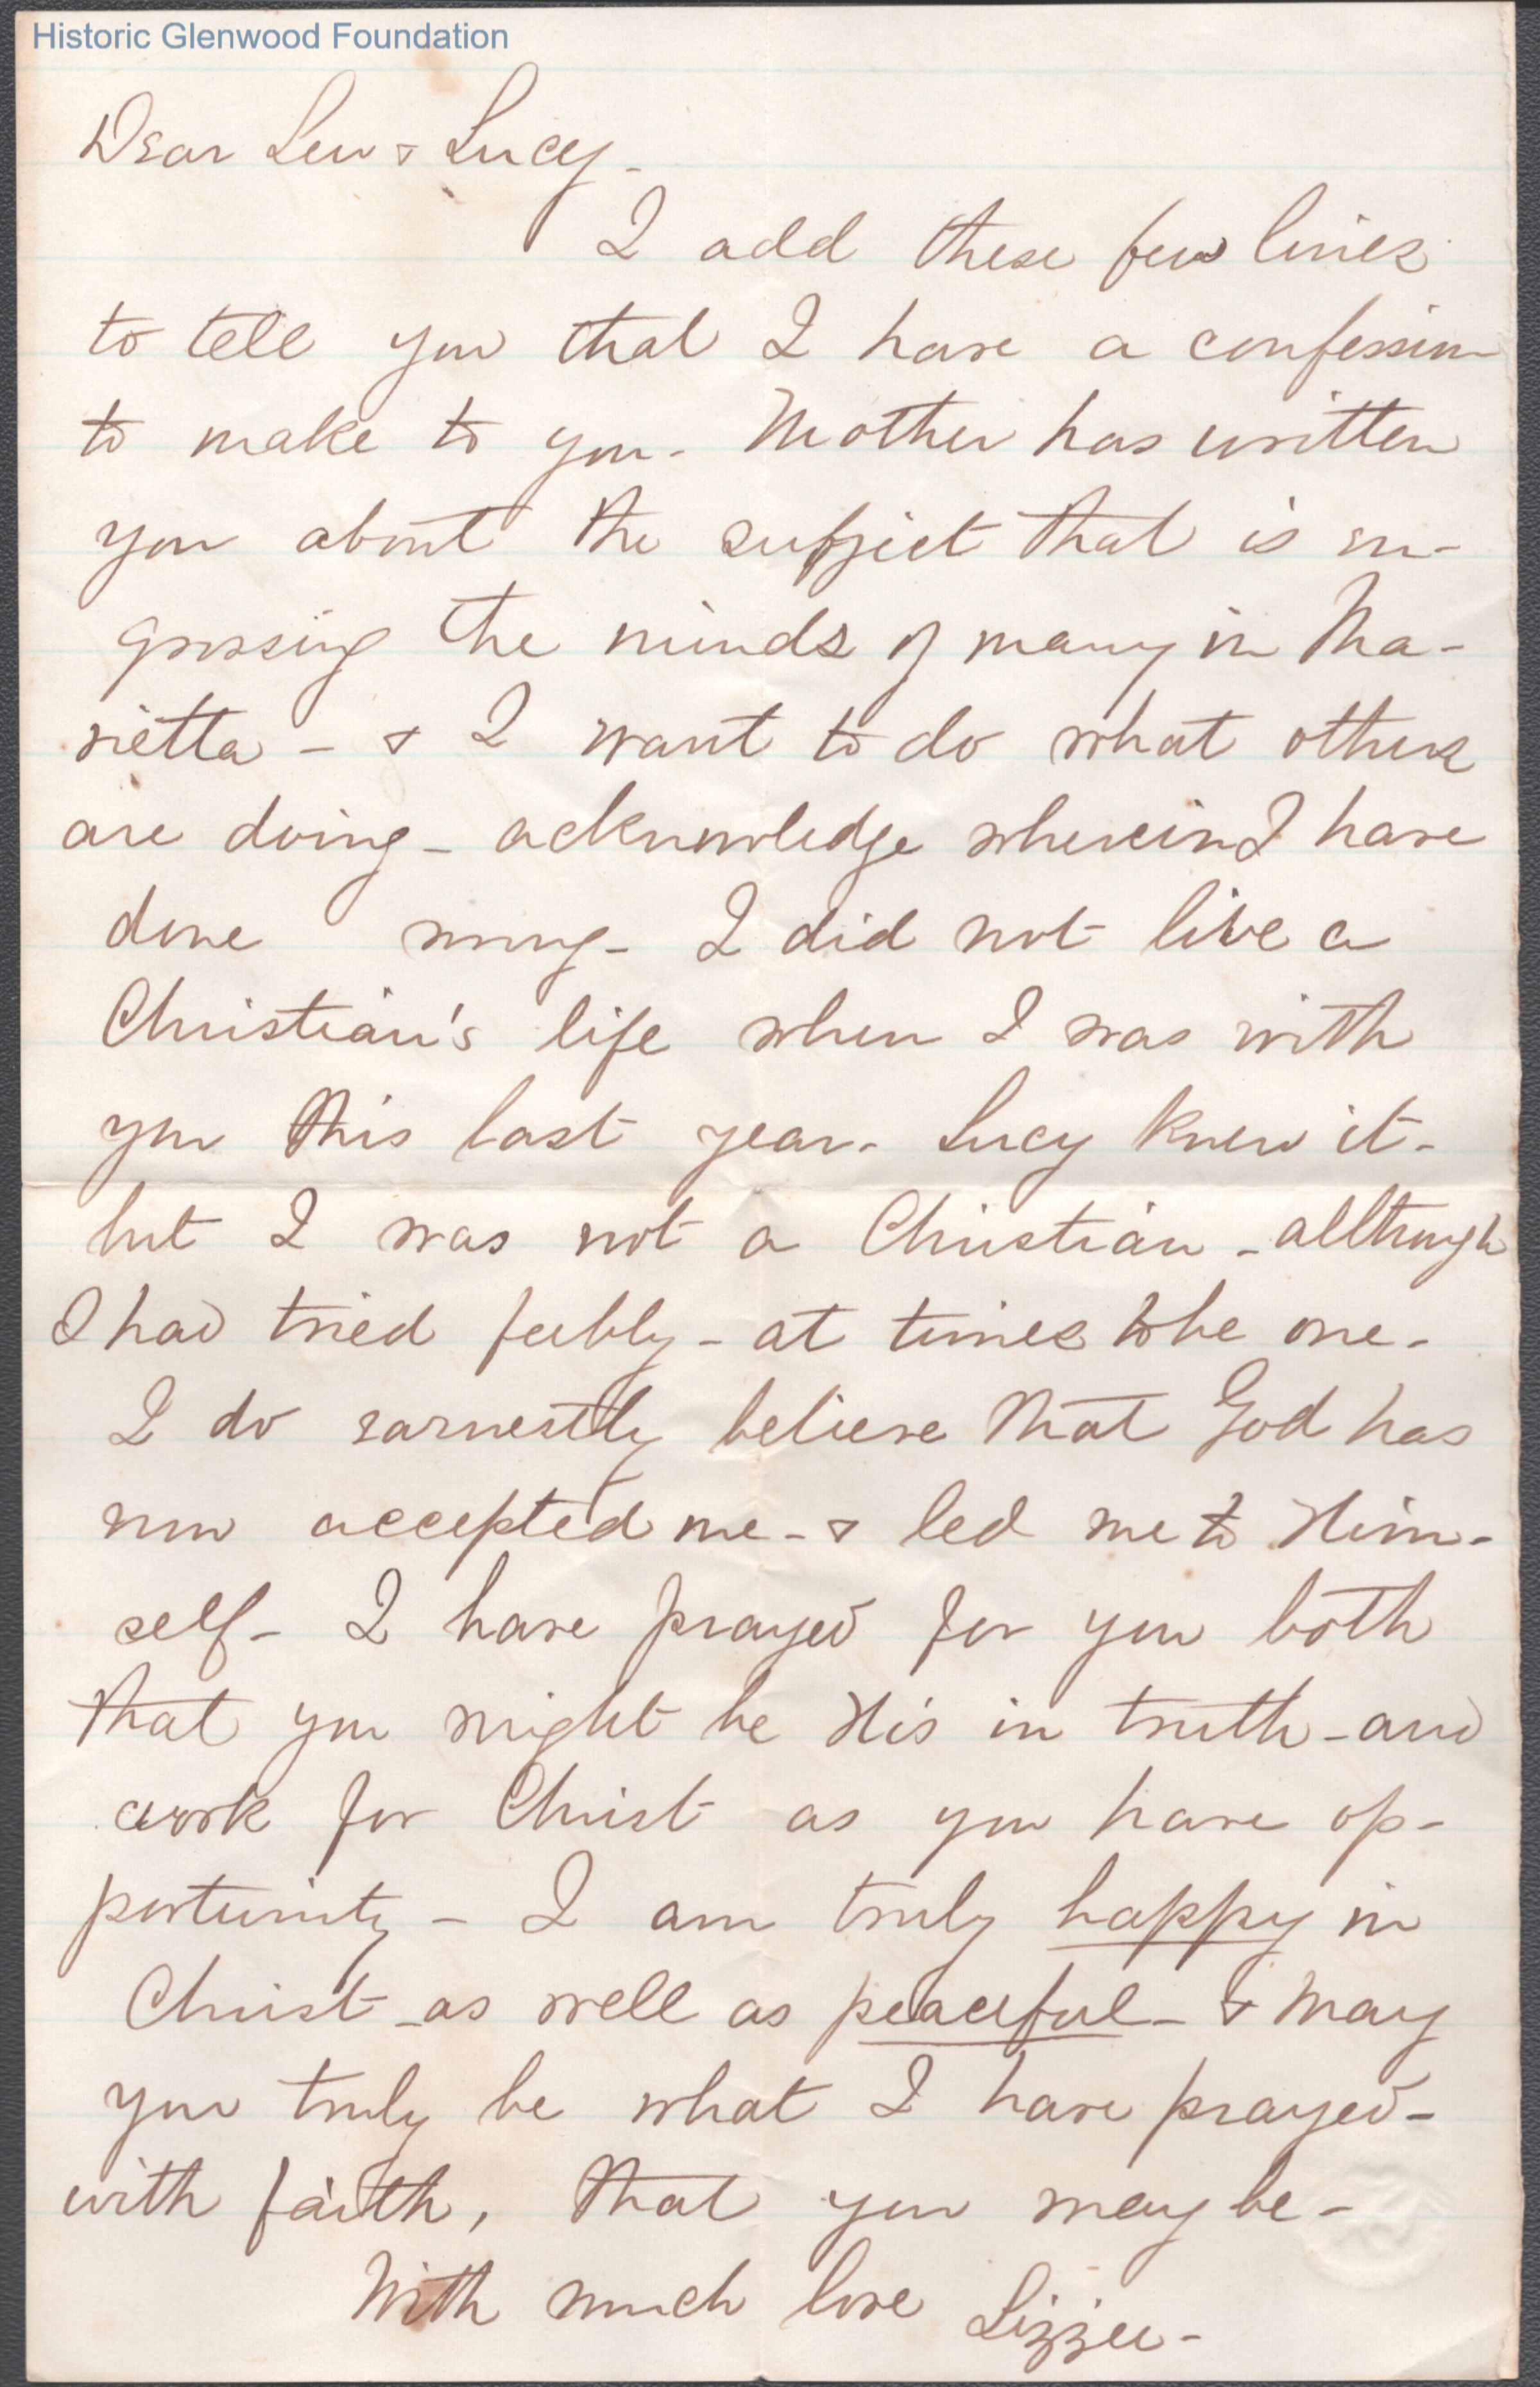 Historic Glenwood Foundation
Dear Lew & Lucy -
I add these few lines
to tell you that I have a confession
to make to you - Mother has written
you about the subject that is en-
grossing the minds of many in Ma-
rietta - & I want to do what others
are doing - acknowledge wherein I have
done wrong - I did not live a
Christian's life when I was with
you this last year - Lucy knew it -
but I was not a Christian - allthough
I had tried feebly - at times to be one -
I do earnestly believe that God has
now accepted me - & led me to Him-
self - I have prayed for you both
that you might be His in truth - and
work for Christ as you have op-
portunity - I am truly happy in
Christ - as well as peaceful - & may
you truly be what I have prayed -
with faith, that you may be -
With much love Lizzie -